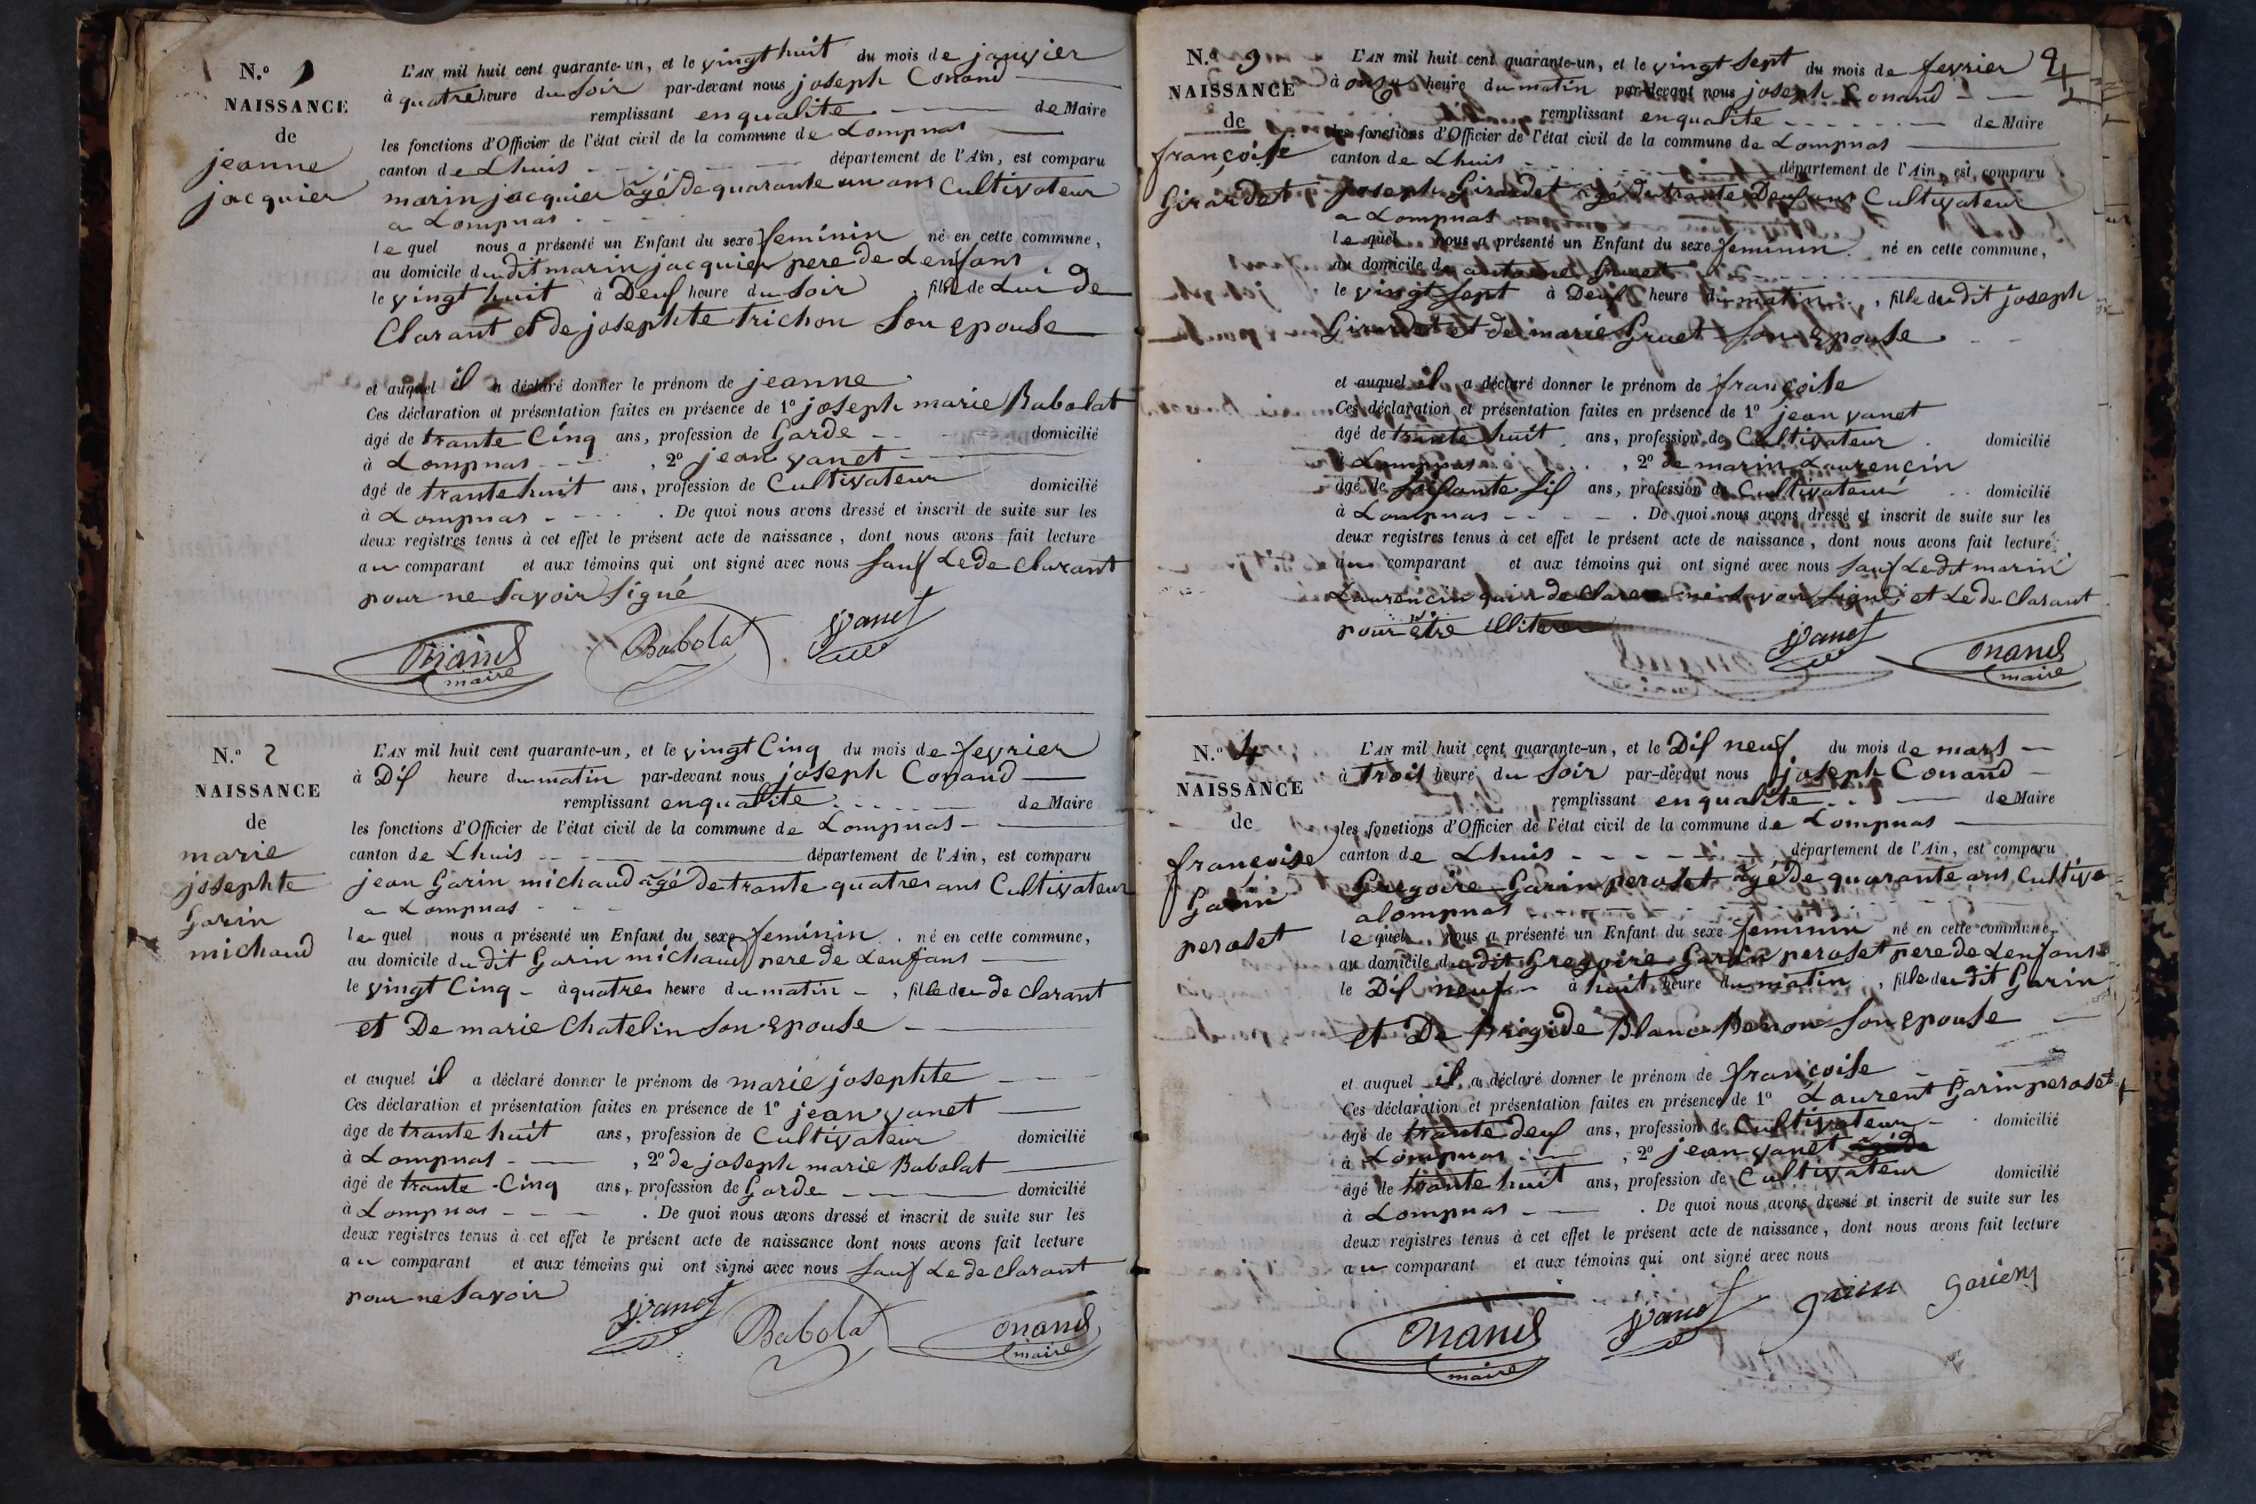 N.o 1
NAISSANCE
de
jeanne
jacquier
L'AN mil huit cent quarante-un, et le vingt huit du mois de janvier
à quatre heure du Soir par-devant nous joseph Conand
remplissant en qualité de Maire
les fonctions d'Officier de l'état civil de la commune de Lompnas
canton de Lhuis département de l'Ain, est comparu
marin jacquier âgé de quarante un ans Cultivateur
a Lompnas
le quel nous a présenté un Enfant du sexe feminin né en cette commune,
au domicile du dit marin jacquier pere de Lenfans
le vingt huit à Deux heure du Soir, fille de Lui de
Clarant et de josephte trichon Son epouse
et auquel il a déclaré donner le prénom de jeanne
Ces déclaration et présentation faites en présence de 1o joseph marie Babolat
âgé de trante Cinq ans, profession de Garde domicilié
à Lompnas, 2o jean vanet
âgé de trante huit ans, profession de Cultivateur domicilié
à Lompnas. De quoi nous avons dressé et inscrit de suite sur les
deux registres tenus à cet effet le présent acte de naissance, dont nous avons fait lecture
au comparant et aux témoins qui ont signé avec nous Sauf Le de Clarant
pour ne Savoir Signé
Conand maire Babolat Vanet
N.o 2
NAISSANCE
de
marie
josephte
Garin
michaud
L'AN mil huit cent quarante-un, et le vingt Cinq du mois de fevrier
à Dix heure du matin par-devant nous joseph Conand
remplissant en qualité de Maire
les fonctions d'Officier de l'état civil de la commune de Lompnas
canton de Lhuis département de l'Ain, est comparu
jean Garin michaud âgé de trante quatres ans Cultivateur
a Lompnas
le quel nous a présenté un Enfant du sexe feminin. né en cette commune,
au domicile du dit Garin michaud pere de Lenfans
le vingt Cinq à quatres heure du matin, fille du de Clarant
et De marie Chatelin Son epouse
et auquel il a déclaré donner le prénom de marie josephte
Ces déclaration et présentation faites en présence de 1o jean vanet
âgé de trante huit ans, profession de Cultivateur domicilié
à Lompnas, 2o de joseph marie Babolat
âgé de trante Cinq ans, profession de Garde domicilié
à Lompnas. De quoi nous avons dressé et inscrit de suite sur les
deux registres tenus à cet effet le présent acte de naissance dont nous avons fait lecture
au comparant et aux témoins qui ont signé avec nous Sauf Le de Clarant
pour ne Savoir
Vanet Babolat Conand maire
N.o 3
NAISSANCE
de
françoise
Girardet
L'AN mil huit cent quarante-un, et le vingt Sept du mois de fevrier 2
à onze heure du matin par-devant nous joseph Conand
remplissant en qualité de Maire
les fonctions d'Officier de l'état civil de la commune de Lompnas
canton de Lhuis département de l'Ain, est comparu
joseph Girardet âgé de trante Deux ans Cultivateur
a Lompnas
le quel nous a présenté un Enfant du sexe feminin. né en cette commune,
au domicile de antoine Gruet
le vingt Sept à Deux heure du matin, fille du dit joseph
Girardet et de marie Gruet Son epouse
et auquel il a déclaré donner le prénom de françoise
Ces déclaration et présentation faites en présence de 1o jean vanet
âgé de trante huit ans, profession de Cultivateur domicilié
à Lompnas, 2o de marin Laurencin
âgé de Soixante Six ans, profession de Cultivateur domicilié
à Lompnas. De quoi nous avons dressé et inscrit de suite sur les
deux registres tenus à cet effet le présent acte de naissance, dont nous avons fait lecture
au comparant et aux témoins qui ont signé avec nous Sauf Le dit marin
Laurencin qui a de Claré ne Savoir Signé et Le de Clarant
pour être illiteré
Vanet Conand maire
N.o 4
NAISSANCE
de
françoise
Garin
peroset
L'AN mil huit cent quarante-un, et le Dix neuf du mois de mars
à trois heure du Soir par-devant nous joseph Conand
remplissant en qualité de Maire
les fonctions d'Officier de l'état civil de la commune de Lompnas
canton de Lhuis département de l'Ain, est comparu
Gregoire Garin peroset âgé de quarante ans Cultiva
a lompnas
le quel nous a présenté un Enfant du sexe feminin né en cette commune,
au domicile du dit Gregoire Garin peroset pere de Lenfans
le Dix neuf à huit heure du matin, fille du dit Garin
et De Brigide Blanc Son epouse
et auquel il a déclaré donner le prénom de françoise
Ces déclaration et présentation faites en présence de 1o Laurent Garin peroset
âgé de trante deux ans, profession de Cultivateur domicilié
à Lompnas, 2o jean vanet
âgé de trante huit ans, profession de Cultivateur domicilié
à Lompnas. De quoi nous avons dressé et inscrit de suite sur les
deux registres tenus à cet effet le présent acte de naissance, dont nous avons fait lecture
au comparant et aux témoins qui ont signé avec nous
Conand maire Vanet garin